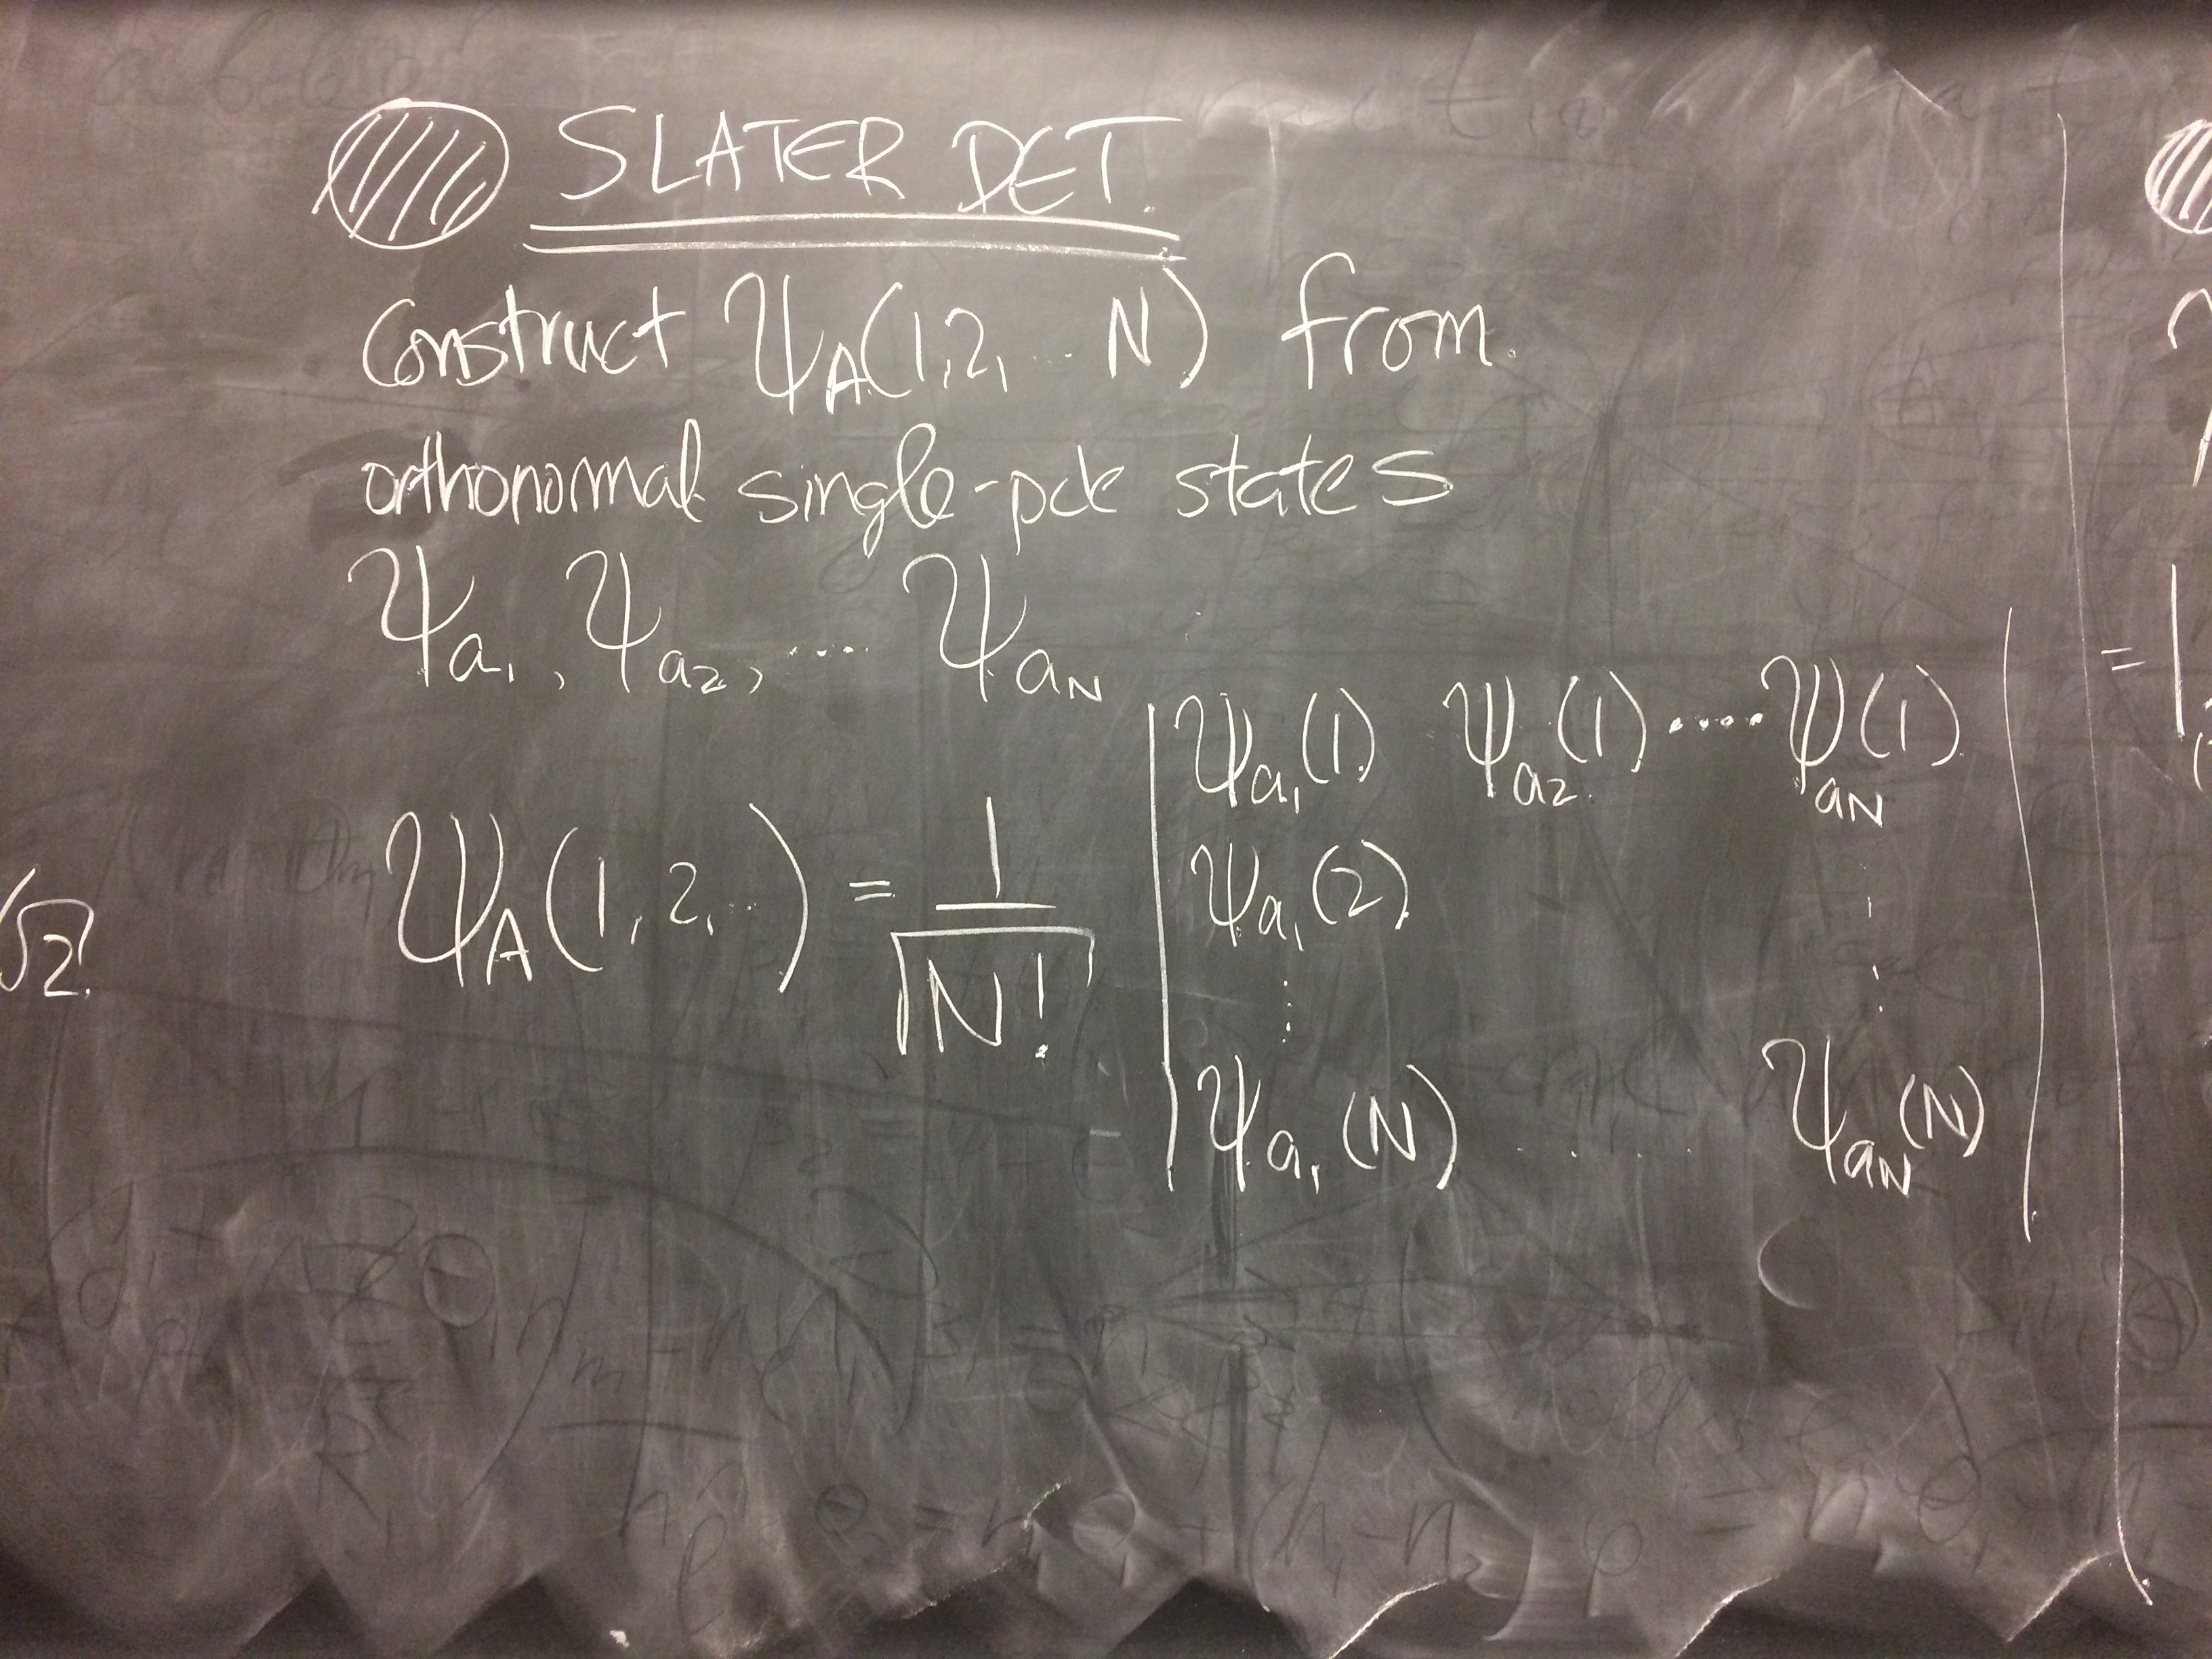 SLATER DET.
Construct ψ_A(1,2, ... N) from
orthonomal single-pcle states
ψ_a₁, ψ_a₂, .... ψ_a_N
ψ_A(1,2,..) = 1/√N! | ψ_a₁(1) ψ_a₂(1) ..... ψ_a_N(1) |
ψ_a₁(2)
ψ_a₁(N) . . . . ψ_a_N(N)
√2
=